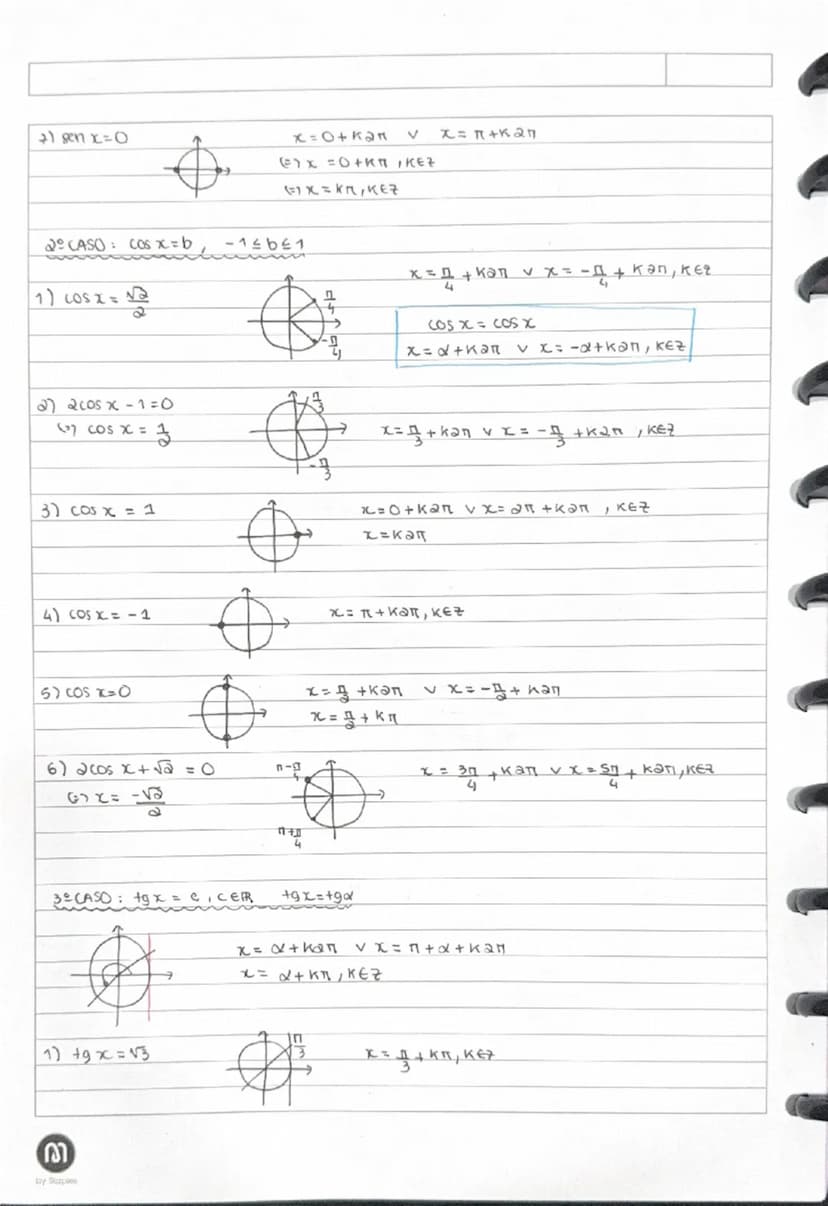 7) sen x=0 x=0+k2π v x=π+k2π
(=) x =0+kπ, k∈Z
(=) x=kπ, k∈Z
2º CASO: cos x=b, -1≤b≤1
1) cos x = √2/2 π/4 -π/4 x=π/4 + k2π v x=-π/4 + k2π, k∈Z
cos x = cos x
x=α+k2π v x=-α+k2π, k∈Z
2) 2cos x -1=0 π/3
(=) cos x = 1/2 -π/3 x=π/3 + k2π v x = -π/3 + k2π, k∈Z
3) cos x = 1 x=0+k2π v x=2π+k2π, k∈Z
x=k2π
4) cos x = -1 x= π+k2π, k∈Z
5) cos x=0 x=π/2 +k2π v x=-π/2 + k2π
x=π/2 + kπ
6) 2cos x+√2 = 0 π-π/4 x = 3π/4 + k2π v x=5π/4 + k2π, k∈Z
(=) x= -√2/2
π+π/4
3º CASO: tg x = c, c∈ℝ tg x=tgα
x= α+k2π v x=π+α+k2π
x= α+kπ, k∈Z
1) tg x=√3 π/3 x=π/3 + kπ, k∈Z
by Staples